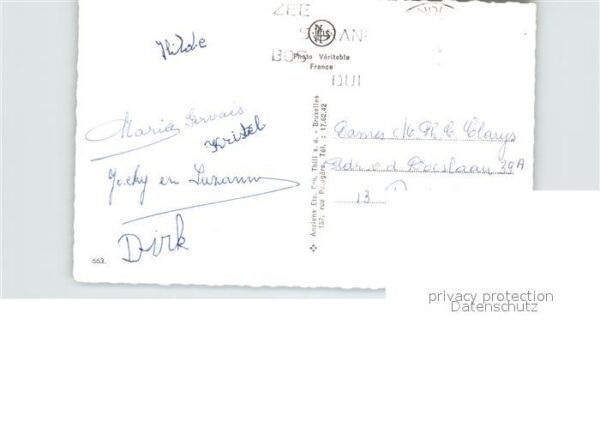 ZEE
BOS
DUI
Photo Véritable
France
Hilde
Maria Gervais
Kristel
Jacky en Suzanne
Dirk
663.
Anciens Ets. Ern. Thill s. a. - Bruxelles
Tél. : 17.62.42
Dames M. Ph. C. Clarys
39A
13
privacy protection
Datenschutz